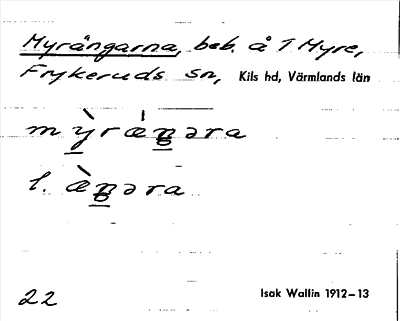 Myrängarna, beb. å 1 Myre,
Frykeruds sn, Kils hd, Värmlands län
m ỳ r ǽ ŋ ə r a
l. æ̀ ŋ ə r a
22 Isak Wallin 1912–13